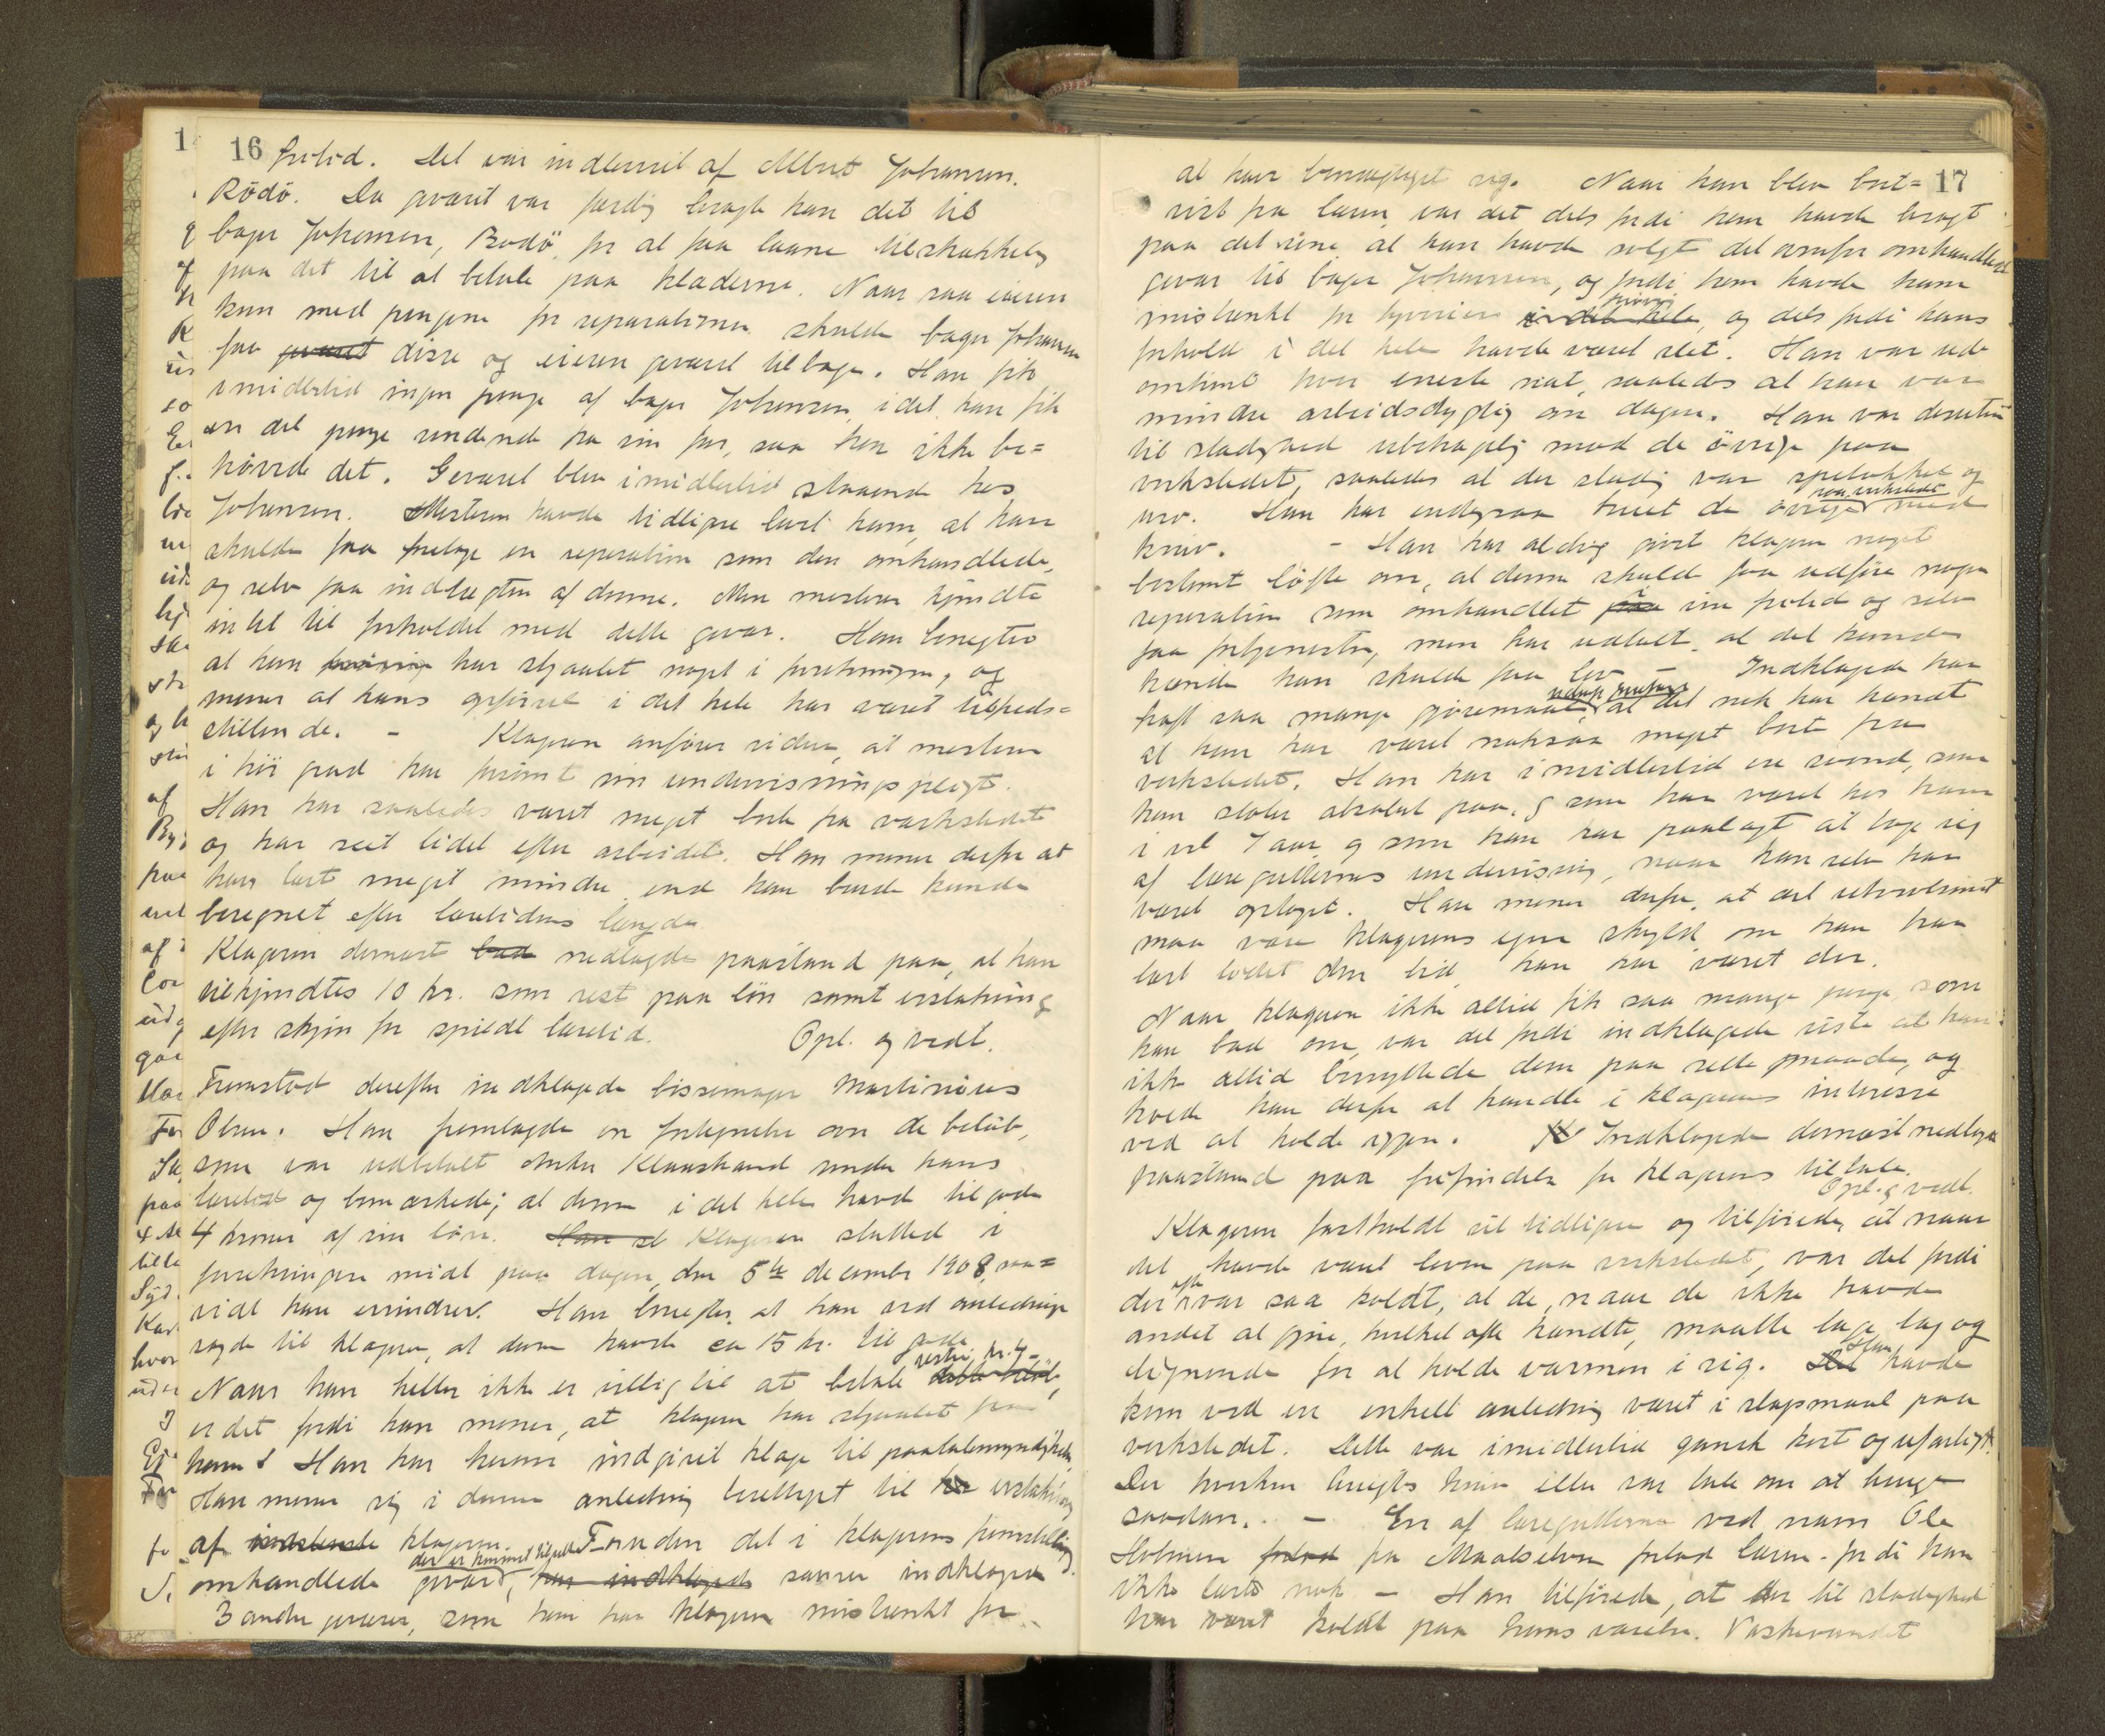 16
fritid. Det var indleveret af Albert Johansen,
Rödö. Da geværet var færdig bragte han det til
bager Johansen, Bodö, for at faa laane tilstrækkelig
paa det til at betale paa klæderne. Naar saa eieren
kom med pengene for reparationen skulde bager Johansen
faa geværet disse og eieren geværet tilbage. Han fik
imidlertid ingen penge af bager Johansen, idet han fik
en del penge sendende fra sin far, saa han ikke be=
hövede det. Geværet blev imidlertid staaende hos
Johansen. Mesteren havde tidligere lært ham, at han
skulde faa foretage en reparation som den omhandlede,
og selv faa indtægten af denne. Men mesteren kjendte
intet til forholdet med dette gevær. Han benegter
at han har stjaalet noget i forretningen, og
mener at hans opförsel i det hele har været tilfreds=
stillende. - Klageren anförer videre, at mesteren
i höi grad har forsömt sin undervisningspligt.
Han har saaledes været meget borte fra værkstedet
og har seet lidet efter arbeidet. Han mener derfor at
han lært meget mindre end han burde kunde
beregnet efter læretidens længde.
Klageren dernæst bad nedlagde paastand paa, at han
tilkjendtes 10 kr. som rest paa lön samt erstatning
efter skjön for spildt læretid. Opl. og vedt.
Fremstod derefter indklagede bössemager Martinius
Olsen. Han fremlagde en fortegnelse over de belöb,
som var udbetalt Anker Klausand under hans
læretid og bemærkede, at denne i det hele havde tilgode
4 kroner af sin lön. Han sl Klageren sluttet i
forretningen midt paa dagen, den 5te december 1908, saa=
vidt han erindrer. Han benegter, at han ved anledning
sagde til klageren, at denne havde ca 15 kr. til gode.
Naar han heller ikke er villig til at betale dette belöb, resten, kr. 4-
er det fordi han mener, at klageren har stjaalet fra
ham. Han har herom indgivet klage til paatalemyndigheden.
Han mener sig i denne anledning berettiget til erstatning
af klageren. Foruden det i klagerens fremstilling
omhandlede gevær, der er kommet tilstede har indklagede savner indklagede
3 andre geværer, som han har klageren mistænkt for
17
at have bemægtiget sig. Naar han blev bort=
vist fra læren, var det dels fordi han havde bragt
paa det rene at han havde solgt det ovenfor omhandlede
gevær til bager Johansen, og fordi han havde ham
mistænkt for tyverier i det hele, og dels fordi hans
forhold i det hele havde været slet. Han var ude
omtrent hver eneste nat, saaledes at han var
mindre arbeidsdygtig om dagen. Han var desuden
til stadighed ubehagelig mod de övrige paa
verkstedet, saaledes at der stadig var spetakkel og
uro. Han har endogsaa truet de övrige paa verkstedet med
kniv. - Han har aldrig givet klageren noget
bestemt löfte om, at denne skulde faa udföre nogen
reparation som omhandlet i sin fritid og selv
faa fortjenesten, men har udtalt at det kunde
hænde han skulde faa lov - Indklagede har
havt saa mange gjöremaal udenfor at det nok har hændt
at han har været noksaa meget borte fra
verkstedet. Han har imidlertid en svend, som
han stoler absolut paa, og som har været hos ham
i vel 7 aar og som han har paalagt at tage sig
af læregutternes undervisning, naar han selv har
været optaget. Han mener derfor, at det udelukkende
maa være klagerens egen skyld, om han har
lært lidet den tid han har været der.
Naar klageren ikke altid fik saa mange penge som
han bad om, var det fordi indklagede vidste at han
ikke altid benyttede dem paa rette maade, og
troede han derfor at handle i klagerens interesse
ved at holde igjen. Indklagede dernæst nedlagde
paastand paa frifindelse for klagerens tiltale.
Opl. og vedt.
Klageren fastholdt sit tidligere og tilföiede, at naar
det havde været leven paa verkstedet, var det fordi
der ofte var saa koldt, at de, naar de ikke havde
andet at gjöre, hvilket ofte hændte, maatte tage tag og
lignende for at holde varmen i sig. Han havde
kun ved en enkelt anledning været i slagsmaal paa
verkstedet. Dette var imidlertid ganske kort og ufarligt.
Der hverken brugtes kniv eller var tale om at bruge
saadan. - En af læregutterne ved navn Ole
Holmen fra Maalselven forlod læren fordi han
ikke lærte nok - Han tilföiede, at der til stadighed
har været koldt paa hans værelse. Vaskevandet